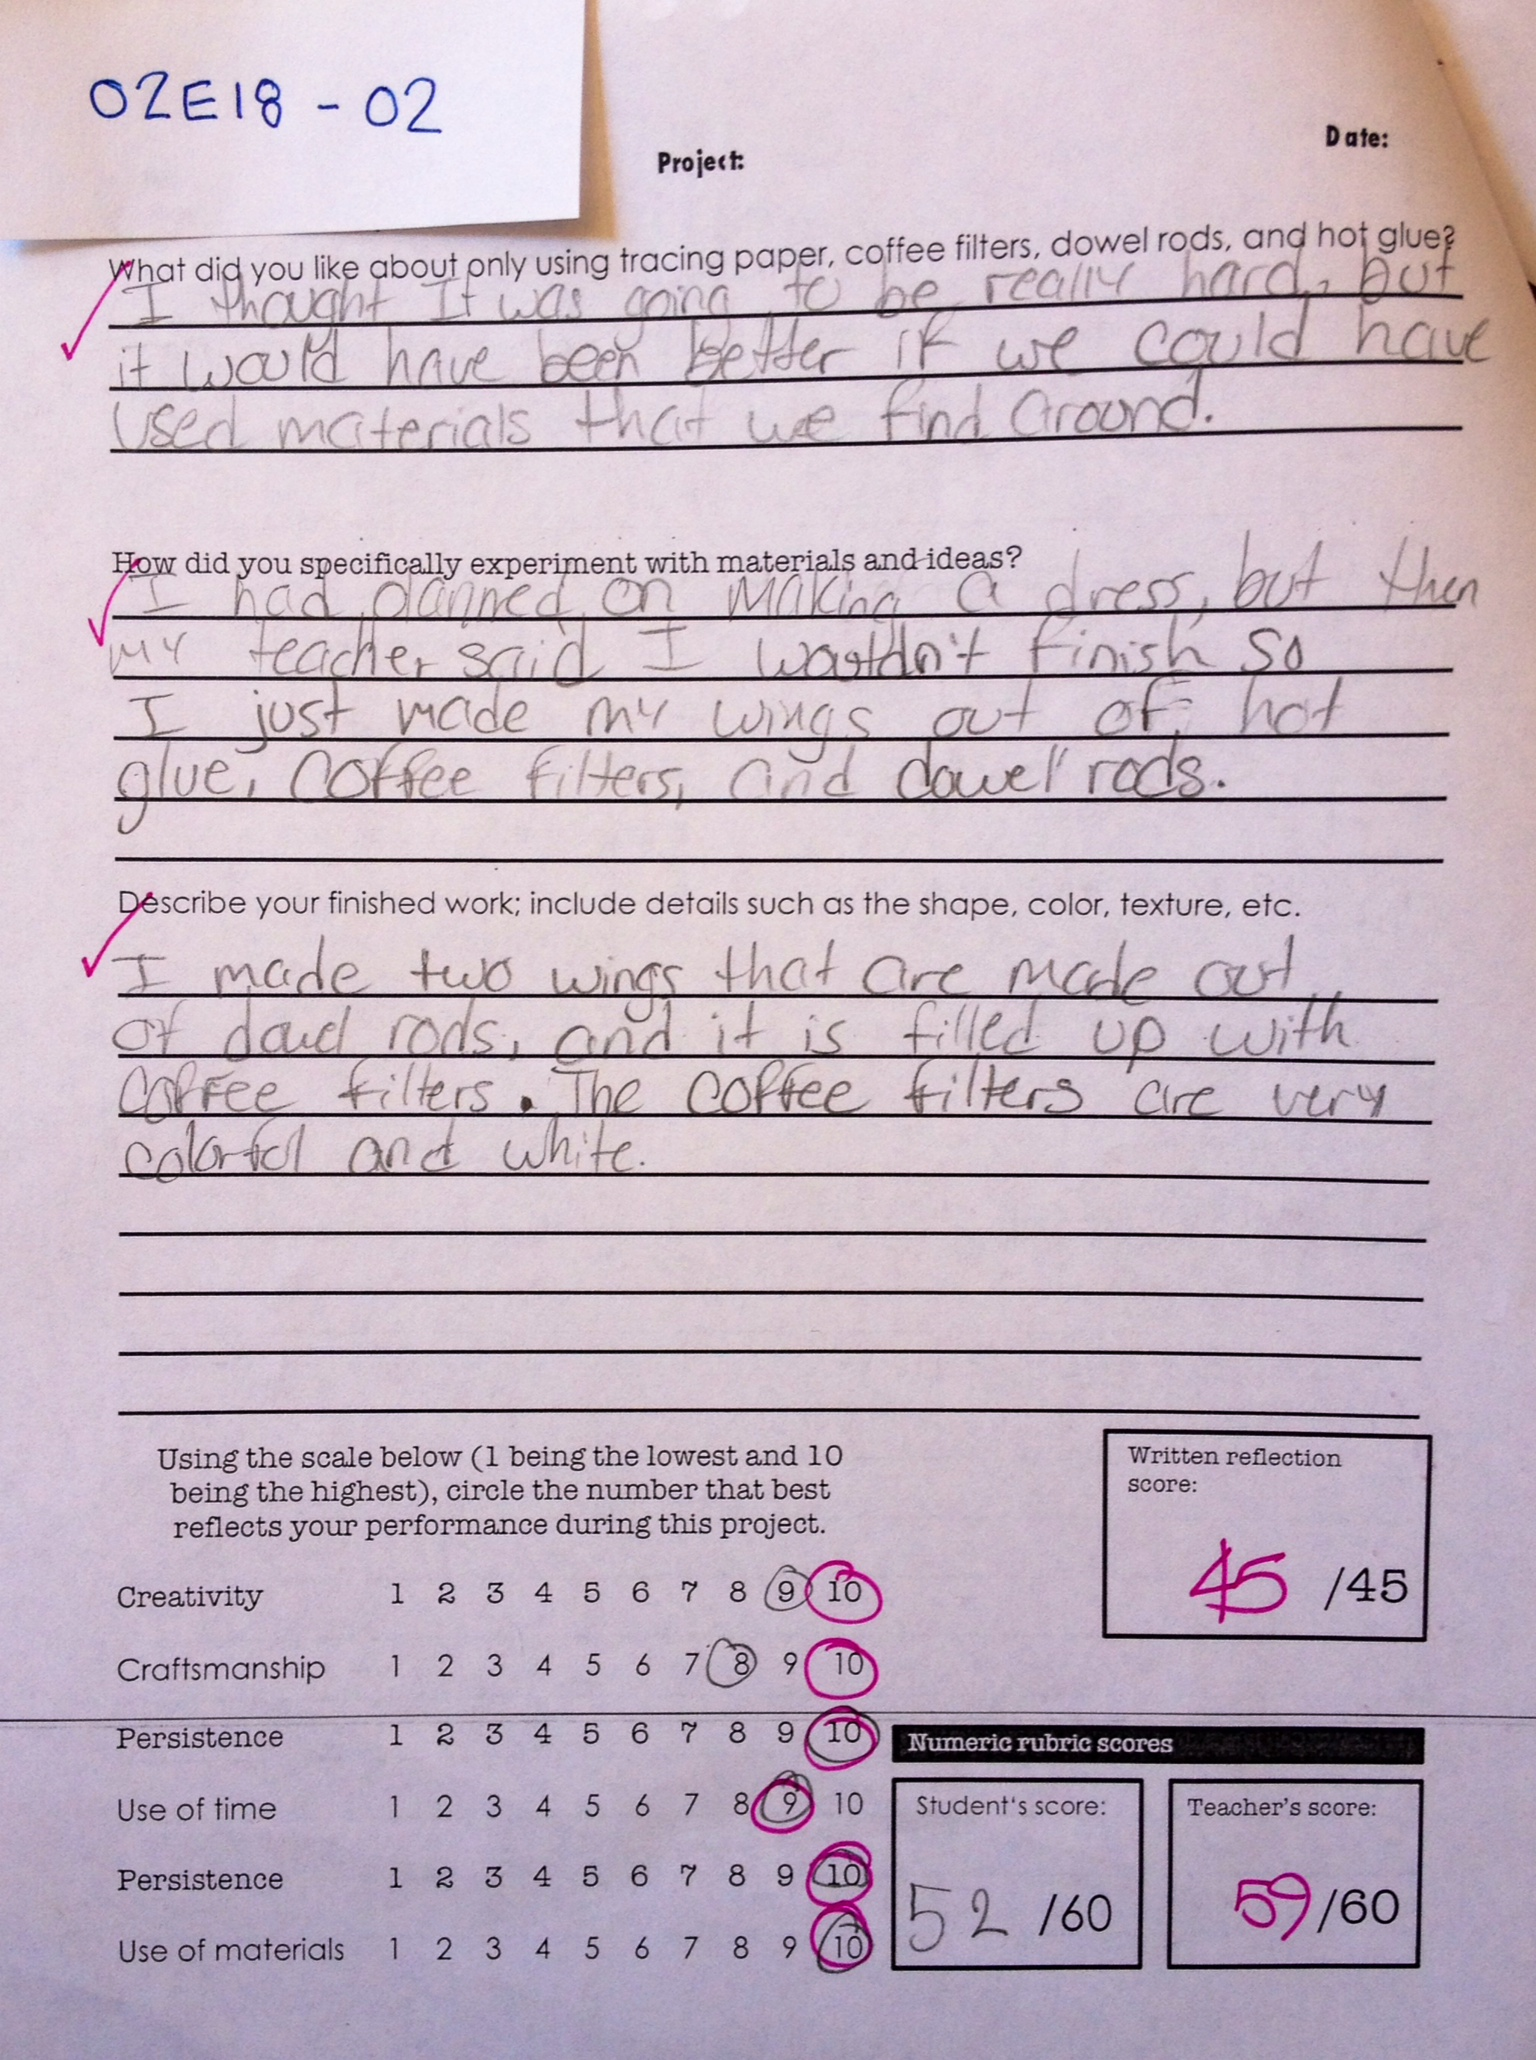 02E18 - 02
Project:
Date:
What did you like about only using tracing paper, coffee filters, dowel rods, and hot glue?
I thought It was going to be really hard, but
it would have been better if we could have
Used materials that we find around.
How did you specifically experiment with materials and ideas?
I had planned on making a dress, but then
my teacher said I wouldn't finish so
I just made my wings out of hot
glue, coffee filters, and dowel rods.
Describe your finished work; include details such as the shape, color, texture, etc.
I made two wings that are made out
of dowl rods, and it is filled up with
coffee filters. The coffee filters are very
colorful and white.
Using the scale below (1 being the lowest and 10
being the highest), circle the number that best
reflects your performance during this project.
Written reflection
score:
45 /45
Creativity 1 2 3 4 5 6 7 8 9 10
Craftsmanship 1 2 3 4 5 6 7 8 9 10
Persistence 1 2 3 4 5 6 7 8 9 10
Use of time 1 2 3 4 5 6 7 8 9 10
Persistence 1 2 3 4 5 6 7 8 9 10
Use of materials 1 2 3 4 5 6 7 8 9 10
Numeric rubric scores
Student's score:
52 /60
Teacher's score:
59/60